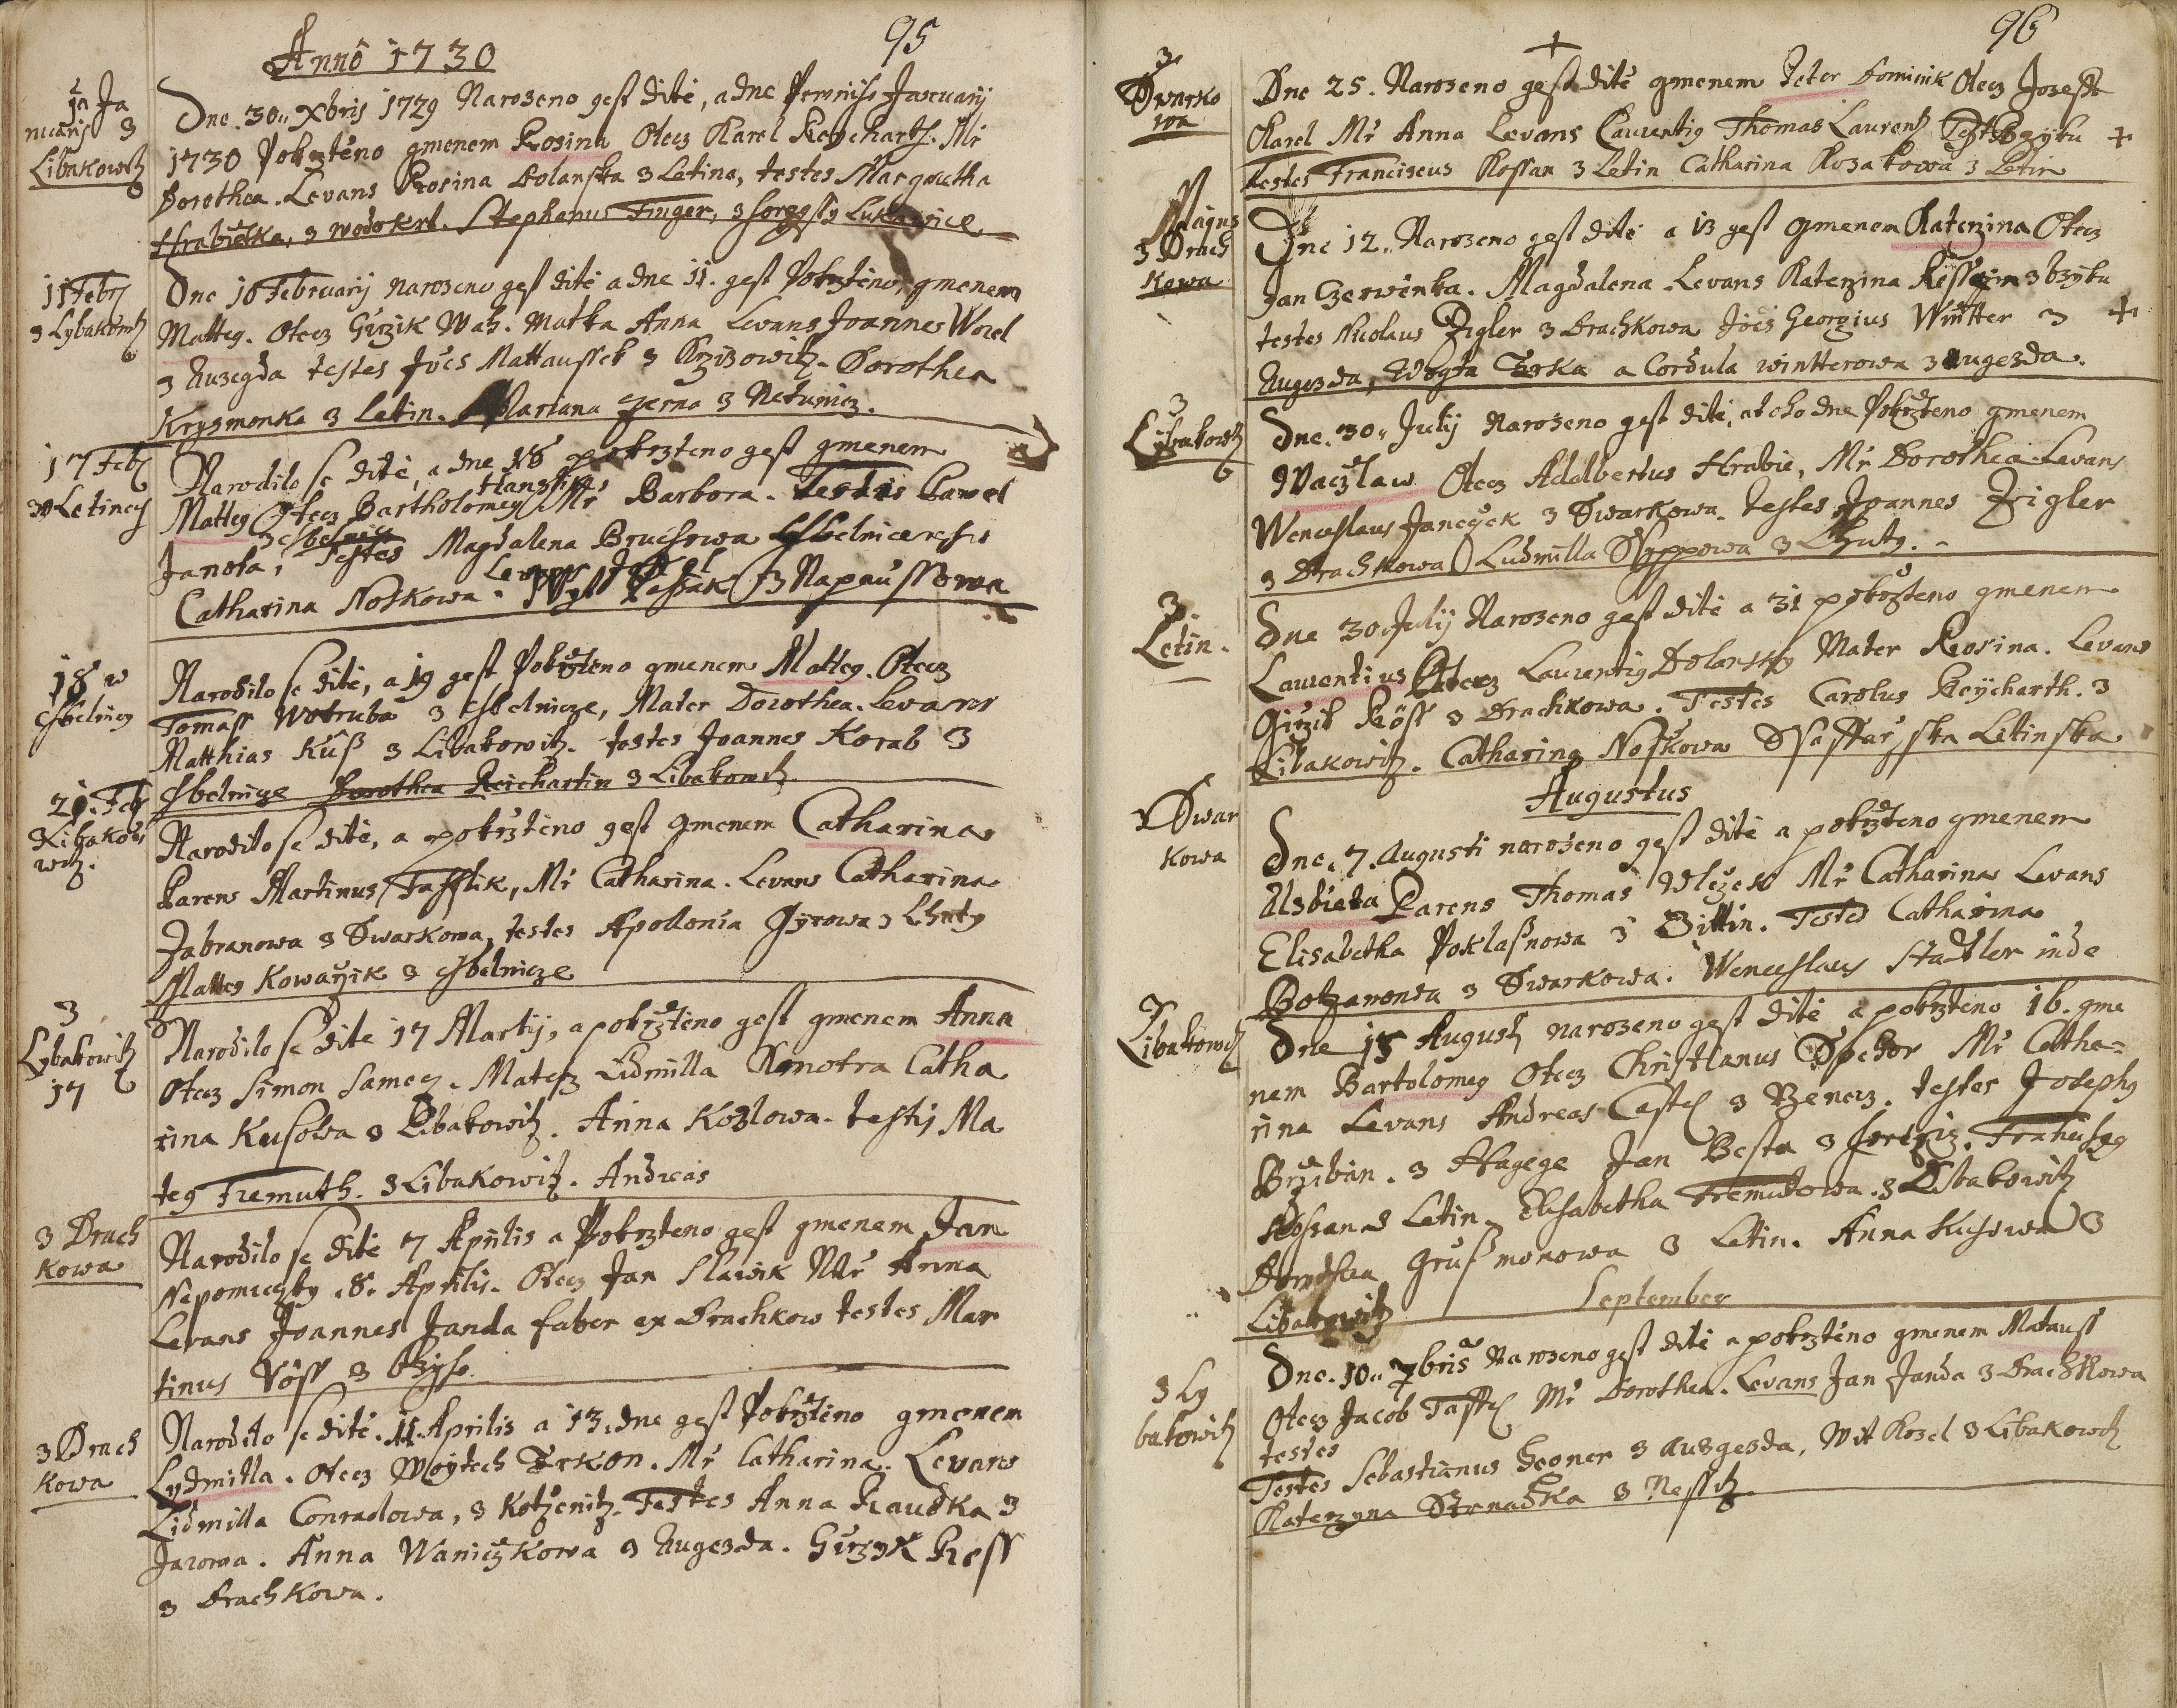 95
Anno 1730
1a Ja
nuarij 3
Libakowitz
Dne. 30. Xbris 1729 Narozeno gest dité, a dne Prwniho Januarij
1730 Pokrzténo gmenem Rosina Otecz Karel Reycharth. Mr
Dorothea. Levans Rosina Dolanska z Letina, testes Margretha
Hrabietka, z wodokrt. Stephanus Finger, z horegssy Lukawice
11 Febr
z Lybakowitz
Dne 10 Februarij narozeno gest dité a dne 11. gest Pokrzténo, gmenem
Matteg. Otecz Girzik Wah. matka Anna Levans Joannes Worel
z Auzegda testes Joes Mattaussek z Krzizowitz. Dorothea
Krysmonka z Letin. Mariana Zerna z Netunicz.
17 Feb
z Letiney
Narodilo se dité, a dne 18 pokrzteno gest gmenem
Matteg Otecz Bartholomeg Hanzlik Mr Barbora. Testis Pawel
Janota, z chelnicz Testes Magdalena Bruchowa
Catharina Noskowa. Levans Wyt Passak z Napaussowa
18 w
Chelnicz
Narodilo se dité, a 19 gest Pokrzténo gmenem Matteg. Otecz
Tomass Wotruba z Chelnicze, Mater Dorothea. Levans
Matthias Kuß z Libakowitz. testes Joannes Korab z
Chelnicze Dorothea Reichartin z Libakowitz
21. Febr
z Libako
witz.
Narodilo se dité, a pokrzténo gest gmenem Catharina
Parens Martinus Tafflik, Mr Catharina. Levans Catharina
Zabranowa z Dwarkowa, testes Apollonia Gyrowa z Lhuty
Matteg Kowarzik z Chelnicze
z
Lybakowitz
17
Narodilo se dite 17 Martij, a pokrzténo gest gmenem Anna
Otecz Simon Samecz. Mater Lidmilla Kmotra Catha
rina Kusowa z Libakowitz. Anna Kozlowa. testis Ma
teg Fremuth. z Libakowitz. Andreas
z Drach
kowa
Narodilo se dité 7 Aprilis a Pokrzteno gest gmenem Jan
Nepomuczky. 8. Aprilis. Otecz Jan Slawik Mr Anna
Levans Joannes Janda faber ex Drachkow testes Mar
tinus Vöss z bzyho.
z Drach
kowa
Narodilo se dité. 11. Aprilis a 13. dne gest Pokrzténo gmenem
Lydmilla. Otecz Woytech Trkon. Mr Catharina. Levans
Lidmilla Conradowa, z Kotzenitz. Testes Anna Raudka z
Jarowa. Anna Waniczkowa z Augezda. Girzyk Ress
z Drachkowa.
96
z
Dwarko
wa
Dne 25. Narozeno gest dité gmenem Peter Dominik Otecz Joseff
Karel Mr Anna Levans Laurentig Thomas Laurentz
testes Franciscus Kossan z Letin Catharina Kozakowa z Letin
Majus
z Drach
kowa
Dne 12. Narozeno gest dité a 13 gest gmenem Katerzina Otecz
Jan Czerwenka. Magdalena. Levans Katerzina Rissin z bzyku
testes Nicolaus Zigler z Drachkowa Joes Georgius Wintter z
Augezda, Wogta Trka a Cordula wintterowa z augezda.
z
Lybakowitz
Dne. 30. Julij Narozeno gest dité, a toho dne Pokrzténo gmenem
Waczlaw Otecz Adalbertus Hrabie, Mr Dorothea Levans
Wenceslaus Janczyck z Dwarkowa. testes Joannes Zigler
z Drachkowa Ludmilla Syppowa z Lhuty.
z
Letin.
Dne 30. Julij Narozeno gest dité a 31 pokrzteno gmenem
Laurentius Otecz Laurentig Dolansky Mater Rosina. Levans
Girzik Röss z Drachkowa. Testes Carolus Reycharth. z
Libakowitz. Catharina Noskowa Ssaffarzska Letinska
Augustus
z Dwar
kowa
Dne. 7. Augusti narozeno gest dité a pokrzteno gmenem
Alzbieta Parens Thomas Wlczek Mr Catharina Levans
Elisabetha Poklaßnowa z Zittin. Testes Catharina
Botzanowa z Dwarkowa. Wenceslaus Stadler inde
z
Libakowitz
Dne 15 Augusti narozeno gest dité a pokrzteno 16. gme
nem Bartolomeg Otecz Christianus Spehor Mr Catha=
rina Levans Andreas Castl z Rzenecz. testes Josephg
Brziban. z Hagege Jan Besta z Horczicz. Francischg
Kossan z Letin. Elisabetha Fremutowa. z Libakowitz
Dorothea Grußmonowa z Letin. Anna Kusowa z
Libakowitz
September
z Ly
bakowitz
Dne. 10. 7bris Narozeno gest dité a pokrzténo gmenem Matauss
Otecz Jacob Taffl Mr Dorothea. Levans Jan Janda z Drachkowa
testes
Testes Sebastianus Geoner z Auegezda, Wit Kozel z Libakowitz
Katerzyna Strnadka z Nessitz.